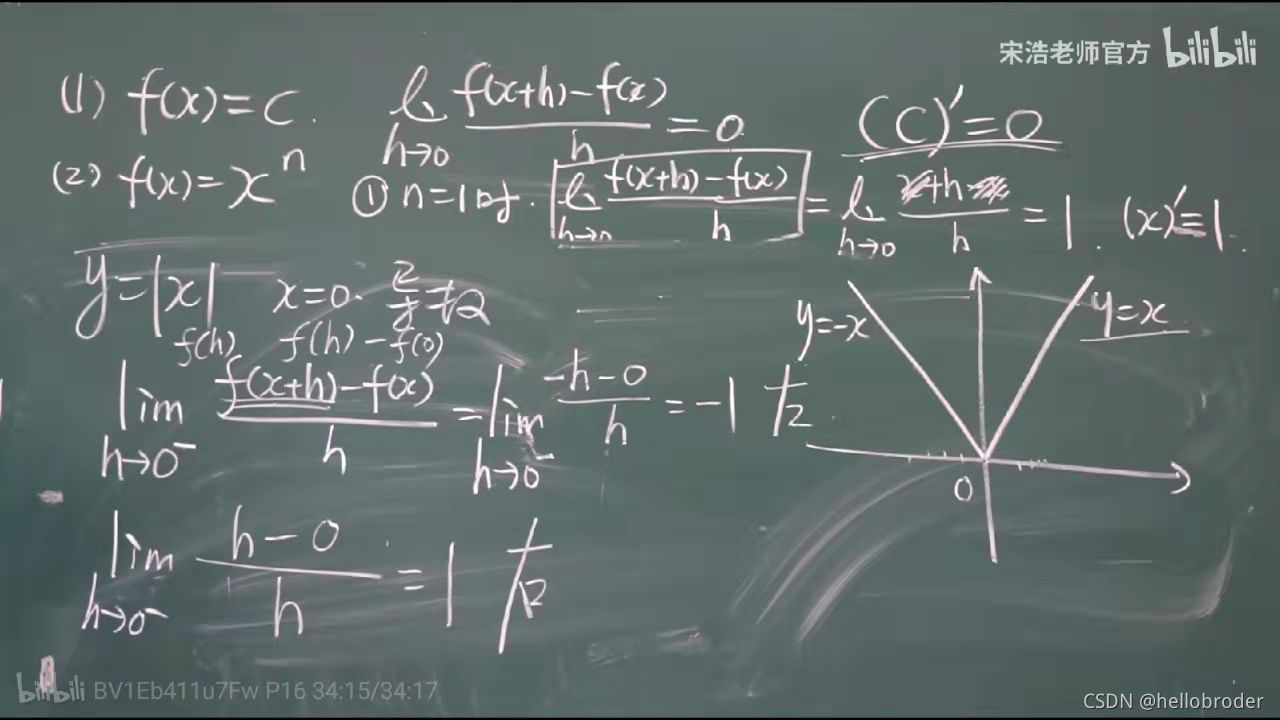 宋浩老师官方 bilibili
(1) f(x)=C. lim h→0 f(x+h)-f(x) / h = 0 (C)′=0
(2) f(x)=xⁿ ① n=1时. lim h→0 f(x+h)-f(x) / h = lim h→0 x+h-x / h = 1. (x)′=1.
y=|x| x=0.
f(h) f(h)-f(0)
lim h→0⁻ f(x+h)-f(x) / h = lim h→0⁻ -h-0 / h = -1 左
lim h→0⁻ h-0 / h = 1 右
y=-x y=x
0
bilibili BV1Eb411u7Fw P16 34:15/34:17
CSDN @hellobroder